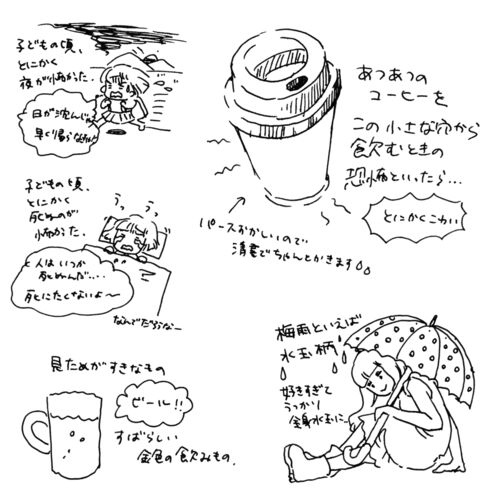 子どもの頃、
とにかく
夜が怖かった.
日が沈んじゃう
早く帰らなきゃ
あつあつの
コーヒーを
この小さな穴から
飲むときの
恐怖といったら…
とにかくこわい
パースおかしいので
清書でちゃんとかきます
子どもの頃、
とにかく
死ぬのが
怖かった.
うっ
うっ
人はいつか
死ぬんだ….
死にたくないよ〜
なんでだろなー
見ためがすきなもの
ビール!!
すばらしい
金色の飲みもの.
梅雨といえば
水玉柄
好きすぎて
うっかり
全身水玉に…